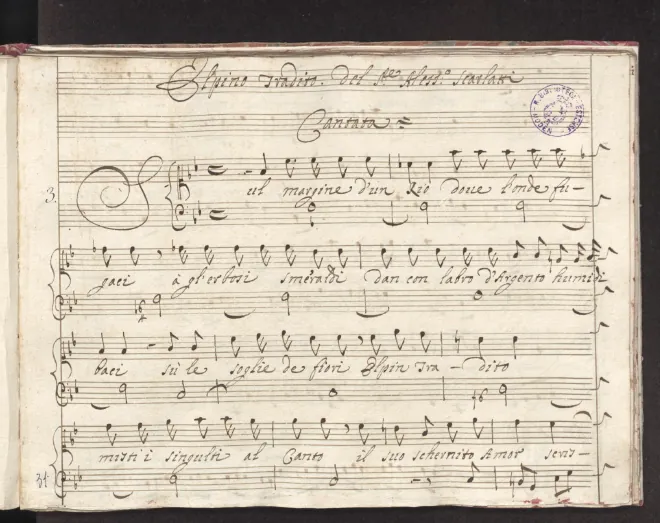 Elpino Tradito. Del Sr. Aless.o Scarlatti
Cantata
3. Sul margine d'un Rio doue l'onde fu-
gaci à gl'erbosi smeraldi dan con labro d'Argento humidi
baci sù le soglie de fiori Elpin Tra - dito
misti i singulti al Canto il suo schernito Amor scris-